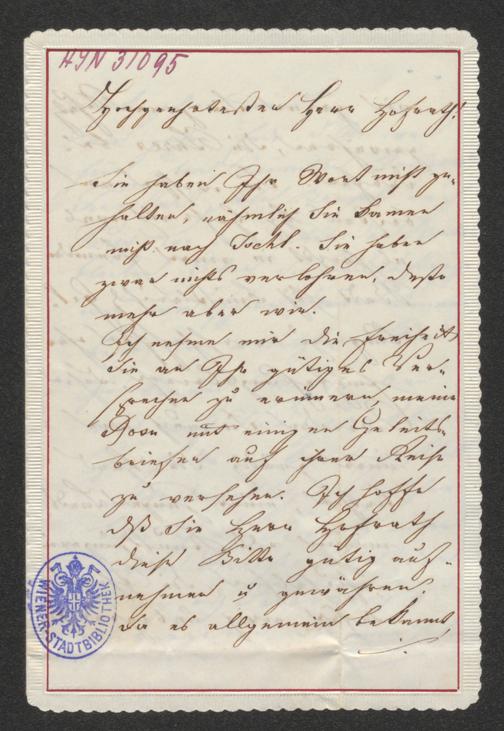 HJN 31095
Hochgeehrtester Herr Hofrath!
Sie haben Ihr Wort nicht ge-
halten, nähmlich Sie kamen
nicht nach Ischl. Sie haben
zwar nichts verlohren, desto
mehr aber wir.
Ich nehme mir die Freiheit
Sie an Ihr gütiges Ver-
sprechen zu erinnern, meine
Rosa mit einigen Geleits-
briefen auf ihrer Reise
zu versehen. Ich hoffe
dß Sie Herr Hofrath
diese Bitte gütig auf-
nehmen u gewähren.
Da es allgemein bekannt,
WIENER STADTBIBLIOTHEK